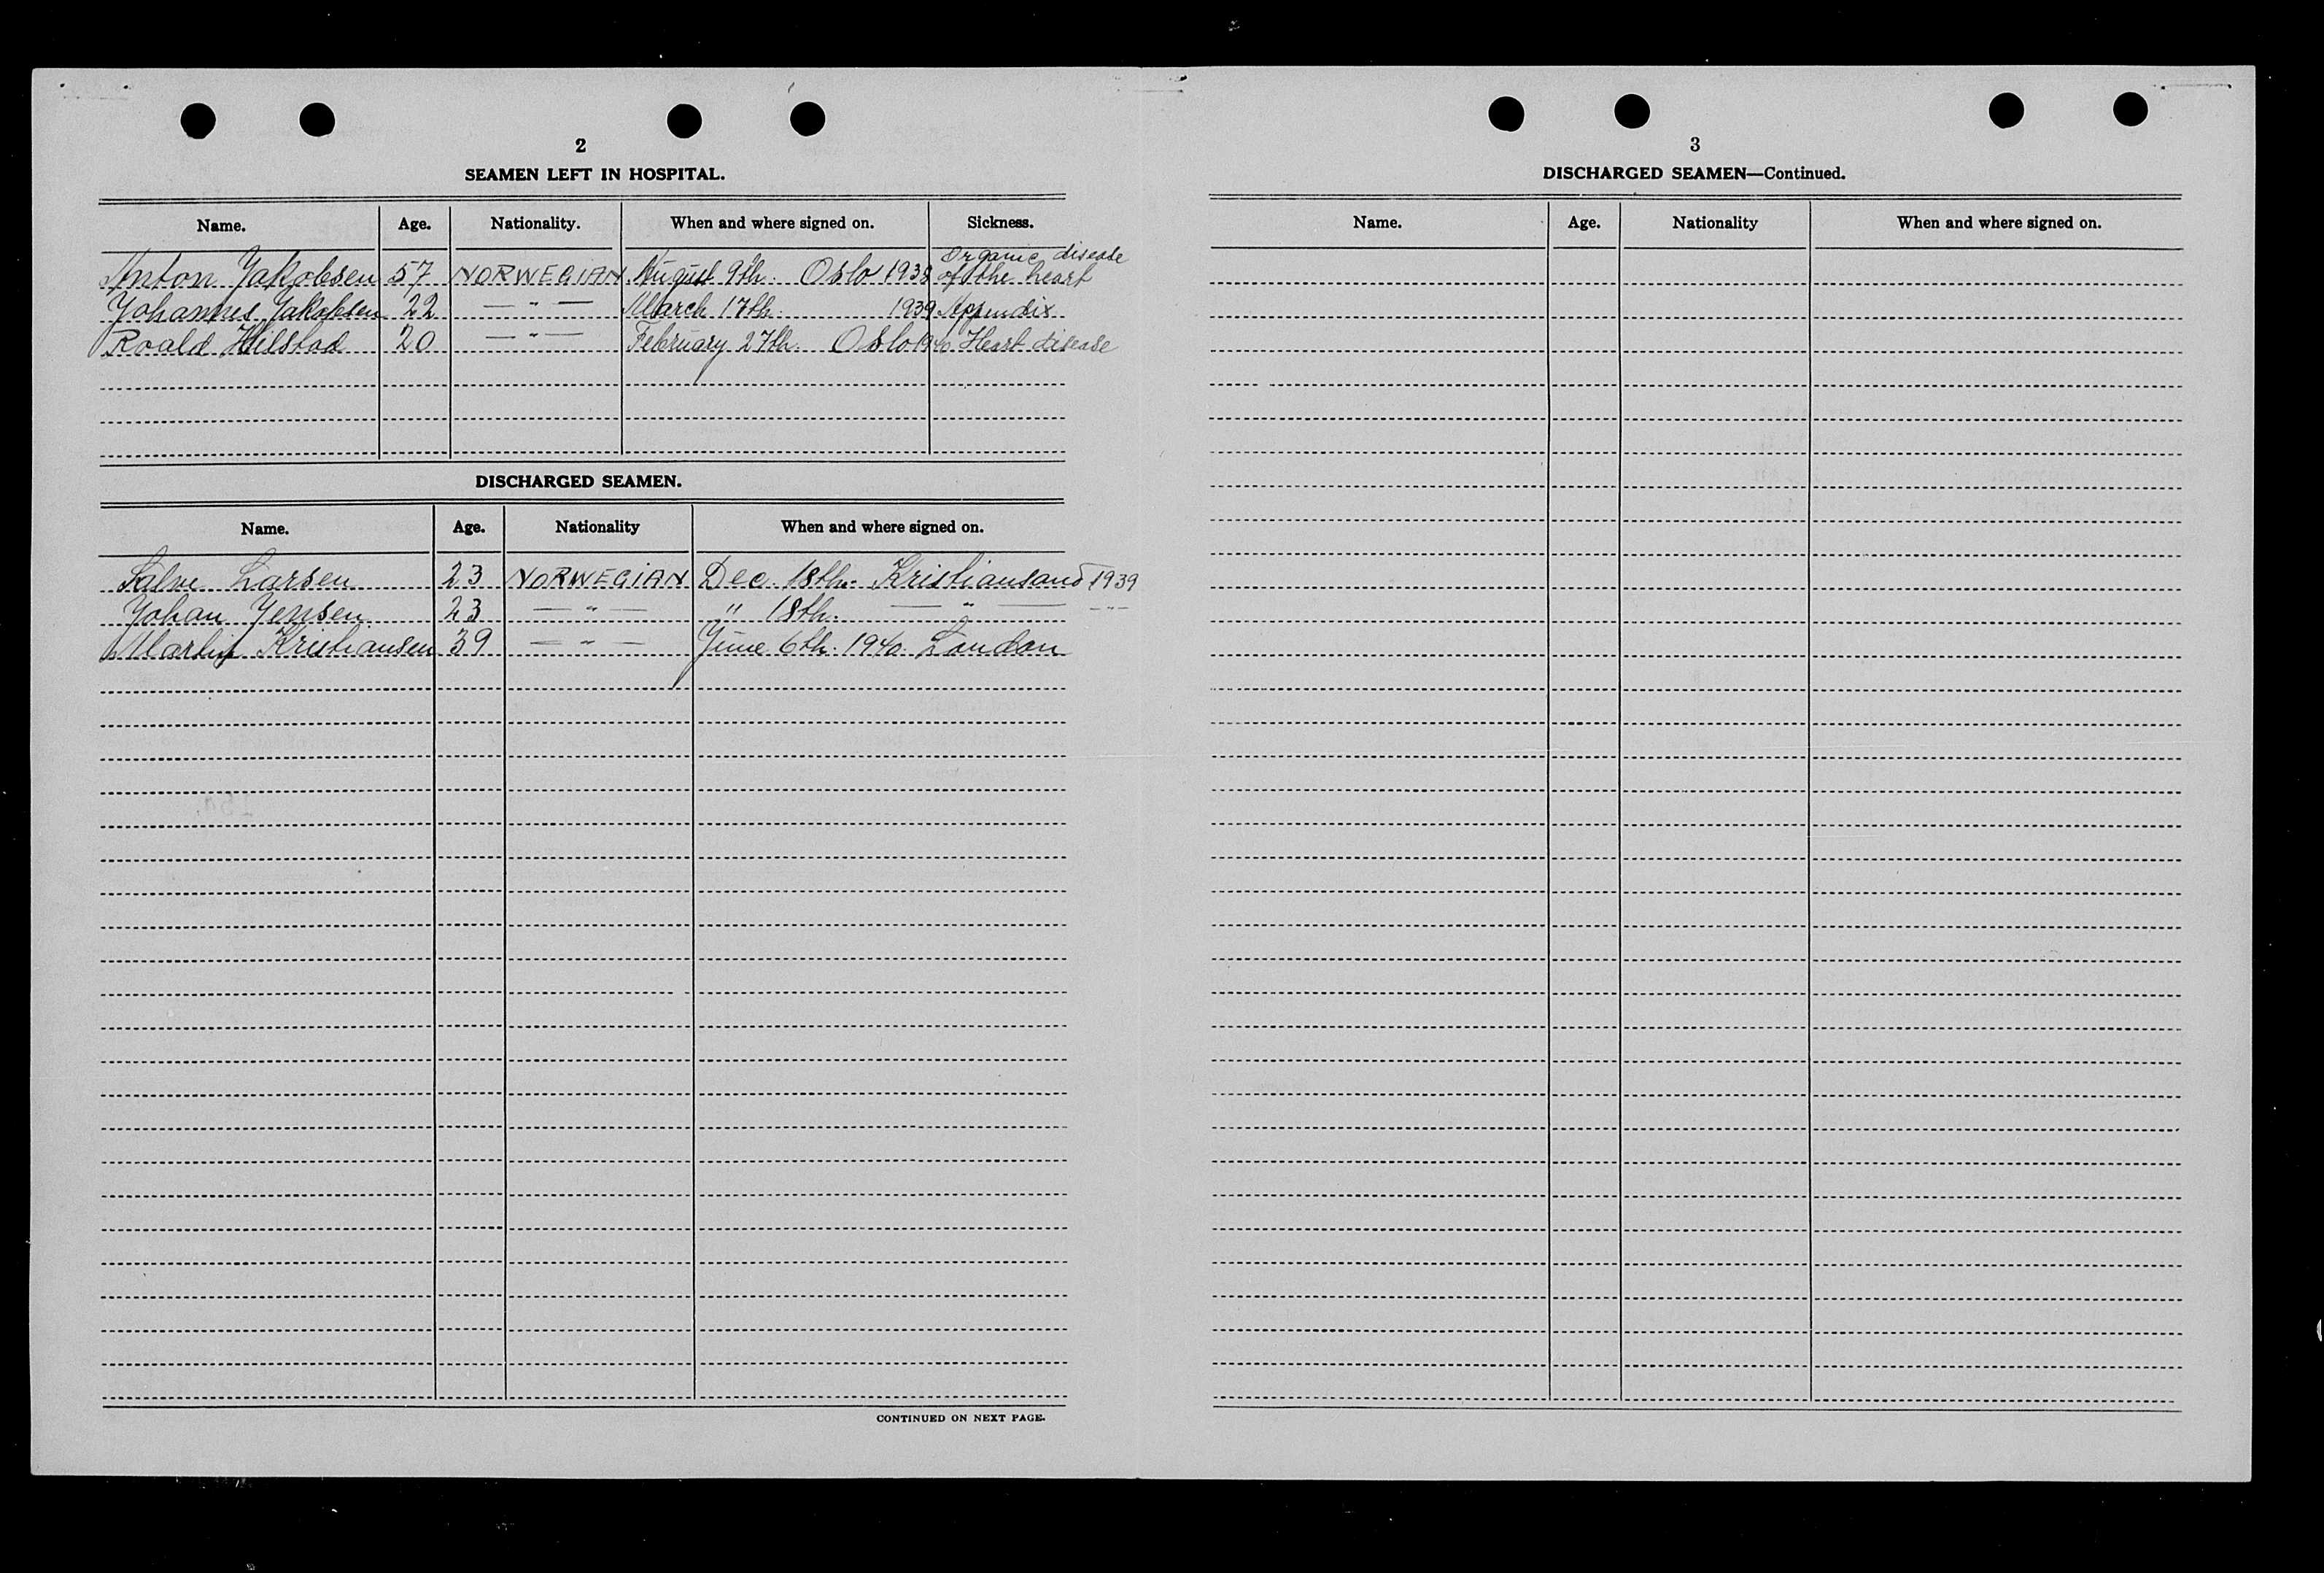 2
SEAMEN LEFT IN HOSPITAL.
Name. Age. Nationality. When and where signed on. Sickness.
Anton Jakobsen 57 NORWEGIAN August 9th. Oslo 1938 Organic disease of the heart
Johannes Jakobsen 22 — " — March 17th. 1939 Appendix
Roald Hilstad 20 — " — February 27th. Oslo 1940 Heart disease
DISCHARGED SEAMEN.
Name. Age. Nationality When and where signed on.
Salve Larsen 23 NORWEGIAN Dec. 18th. Kristiansand 1939
Johan Jensen 23 — " — " 18th. — " — — " —
Martin Kristiansen 39 — " — June 6th. 1940. London
CONTINUED ON NEXT PAGE.
3
DISCHARGED SEAMEN—Continued.
Name. Age. Nationality When and where signed on.